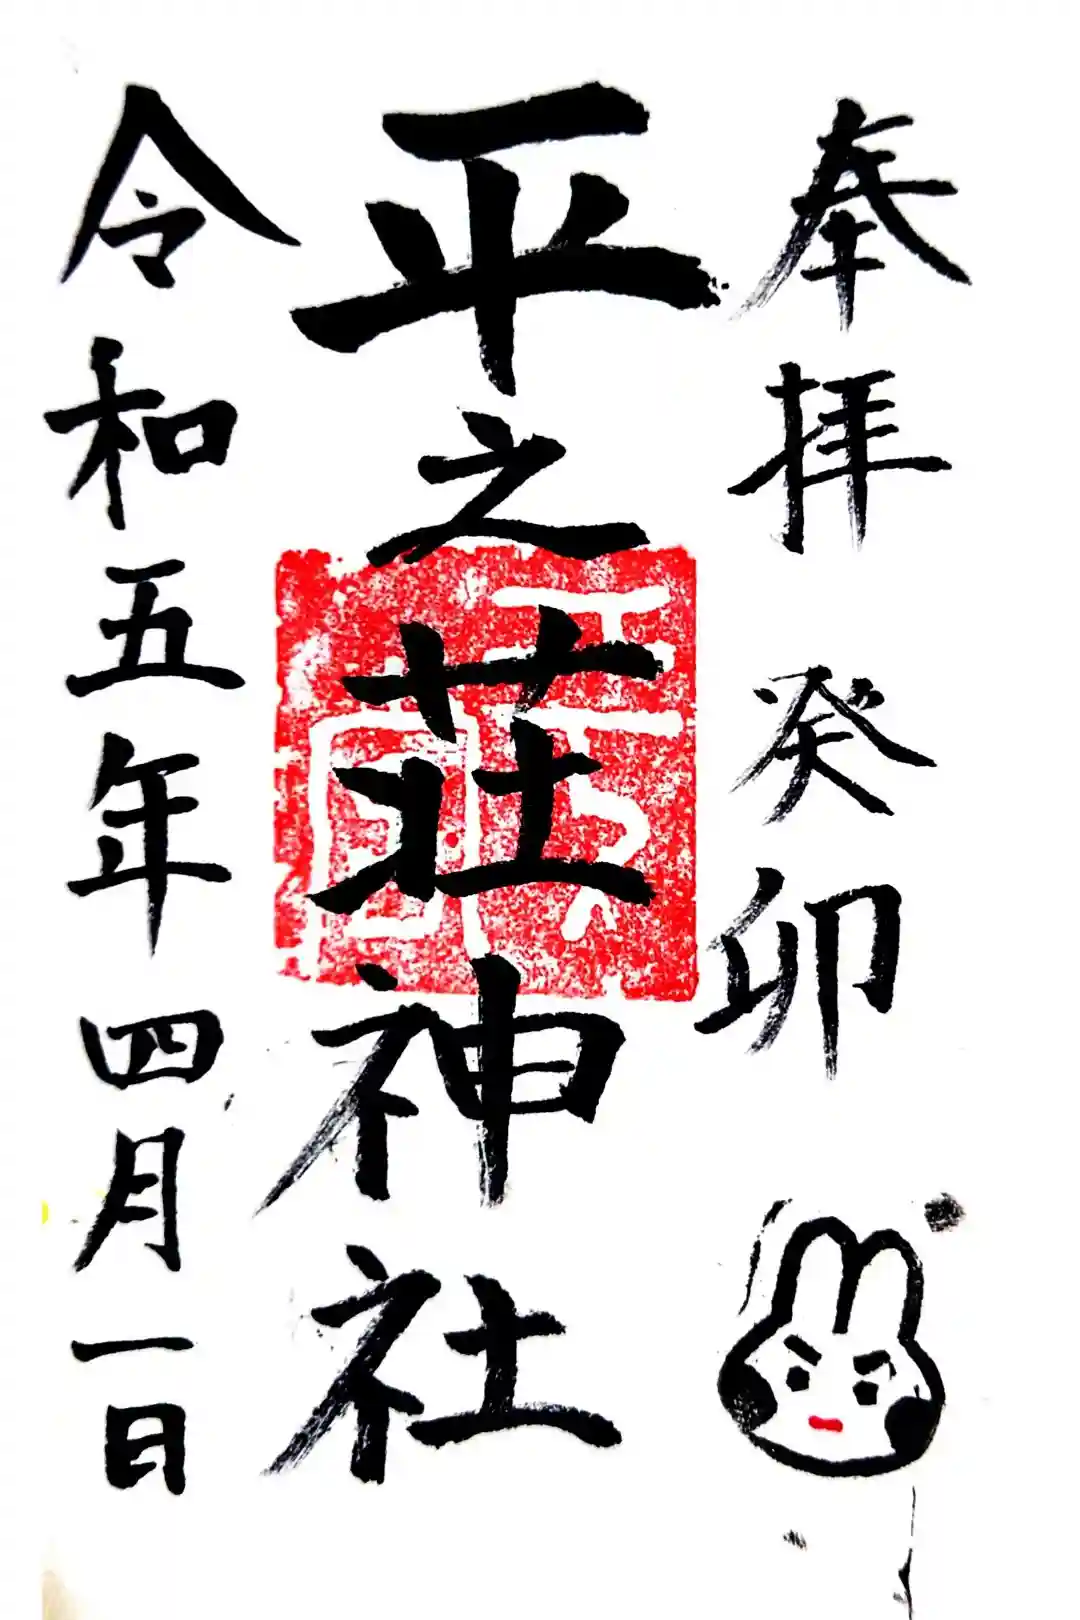 奉拝 癸卯
平之荘神社
令和五年四月一日